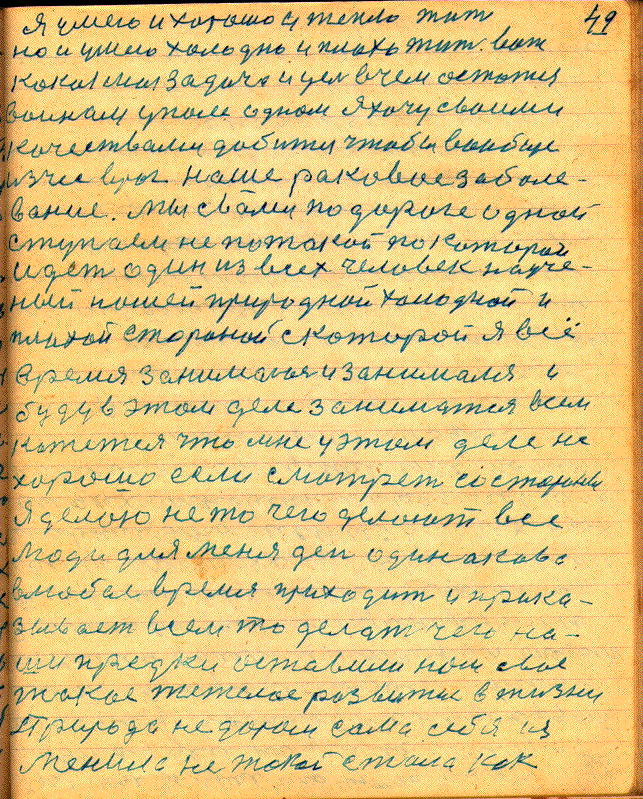 49
Я умею и хорошо и тепло жит
но и умею холодно и плохо жит. вот
кокая моя задача и цел в чем остатся
воинам у поле одном я хочу своими
качествами добится чтобы вообще
изчез враг наше раковое заболе-
вание. мы с вами по дороге одной
ступаем не по такой по которой
идет один из всех человек науче-
ный нашей природной холодной и
плохой стороной с которой я всё
время занимался и занималя и
буду в этом деле заниматся всем
кажется что мне у этом деле не
хорошо если смотрет со стороны
Я делаю не то чего делают все
люди для меня ден одинаково
в любое время приходит и прика-
зывает всем то делат чего на-
ши предки оставили нам свое
такое тежелое розвитие в жизни
Природа не даром сама себя из
менила не такой стала как